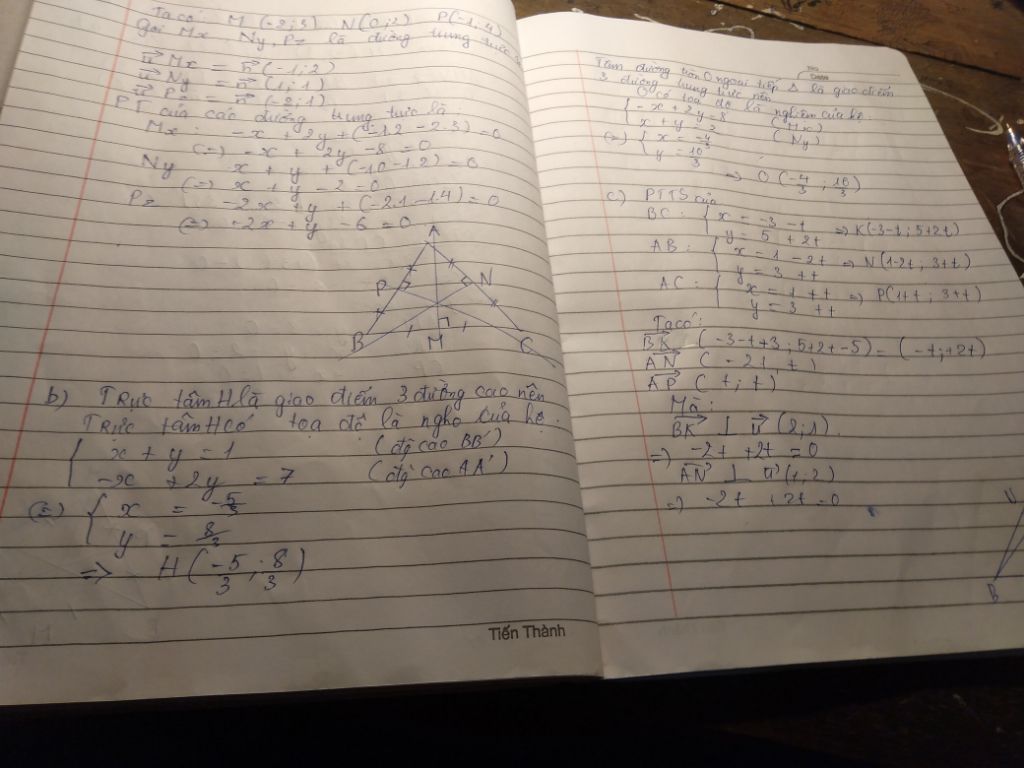 Ta có: M (-2; 3) N(0; 2) P(-1, 4)
gọi Mx Ny, Pz là đường trung trực
u Mx = n (-1; 2)
u Ny = n (1; 1)
u Pz = n (-2; 1)
PT của các đường trung trực là:
Mx: -x + 2y + (-1.2 - 2.3) = 0
(=) -x + 2y - 8 = 0
Ny x + y + (-1.0 - 1.2) = 0
(=) x + y - 2 = 0
Pz -2x + y + (-2.1 - 1.4) = 0
(=) -2x + y - 6 = 0
A
P N
B M C
b) Trực tâm H là giao điểm 3 đường cao nên
Trực tâm H có toạ độ là ngho của hệ.
x + y = 1 (đg cao BB')
-x + 2y = 7 (đg cao AA')
(=) x = -5/3
y = 8/3
=> H (-5/3 ; 8/3)
Tiến Thành
Tâm đường tròn O ngoại tiếp Δ là giao điểm
3 đường trung trực nên
O có toạ độ là nghiệm của hệ.
-x + 2y = 8 (Mx)
x + y = 2 (Ny)
(=) x = -4/3
y = 10/3
=> O (-4/3 ; 10/3)
c) PTTS của
BC: x = -3 - t
y = 5 + 2t => K(-3-t; 5+2t)
AB: x = 1 - 2t => N(1-2t, 3+t)
y = 3 + t
AC: x = 1 + t => P(1+t; 3+t)
y = 3 + t
Ta có:
BK (-3-t+3; 5+2t-5) = (-t; +2t)
AN (-2t, t)
AP (t; t)
Mà:
BK ⊥ u (2; 1)
=> -2t + 2t = 0
AN ⊥ u (1; 2)
=> -2t + 2t = 0
B